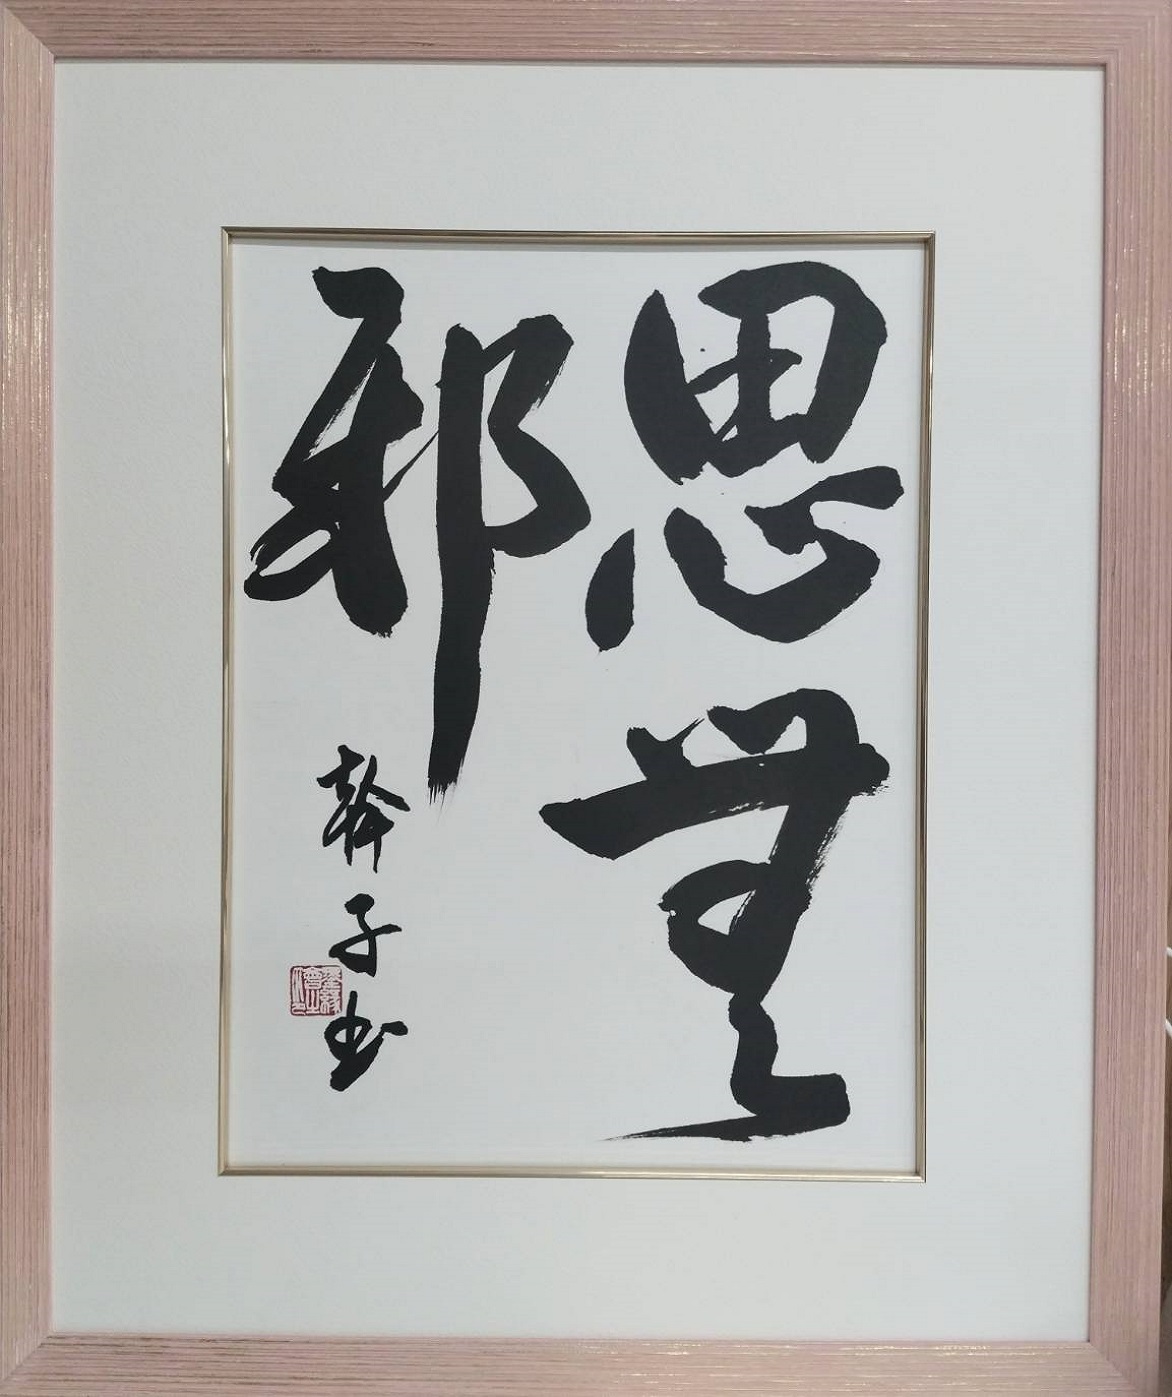 思無
邪
幹子書